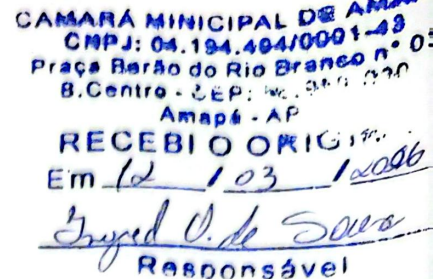 CAMARÁ MINICIPAL DE
CNPJ: 04.194.494/0001-49
Praça Barão do Rio Branco nº
B.Centro - CEP:
Amapá - AP
RECEBI O
Em 12 / 03 /
de Souza
Responsável